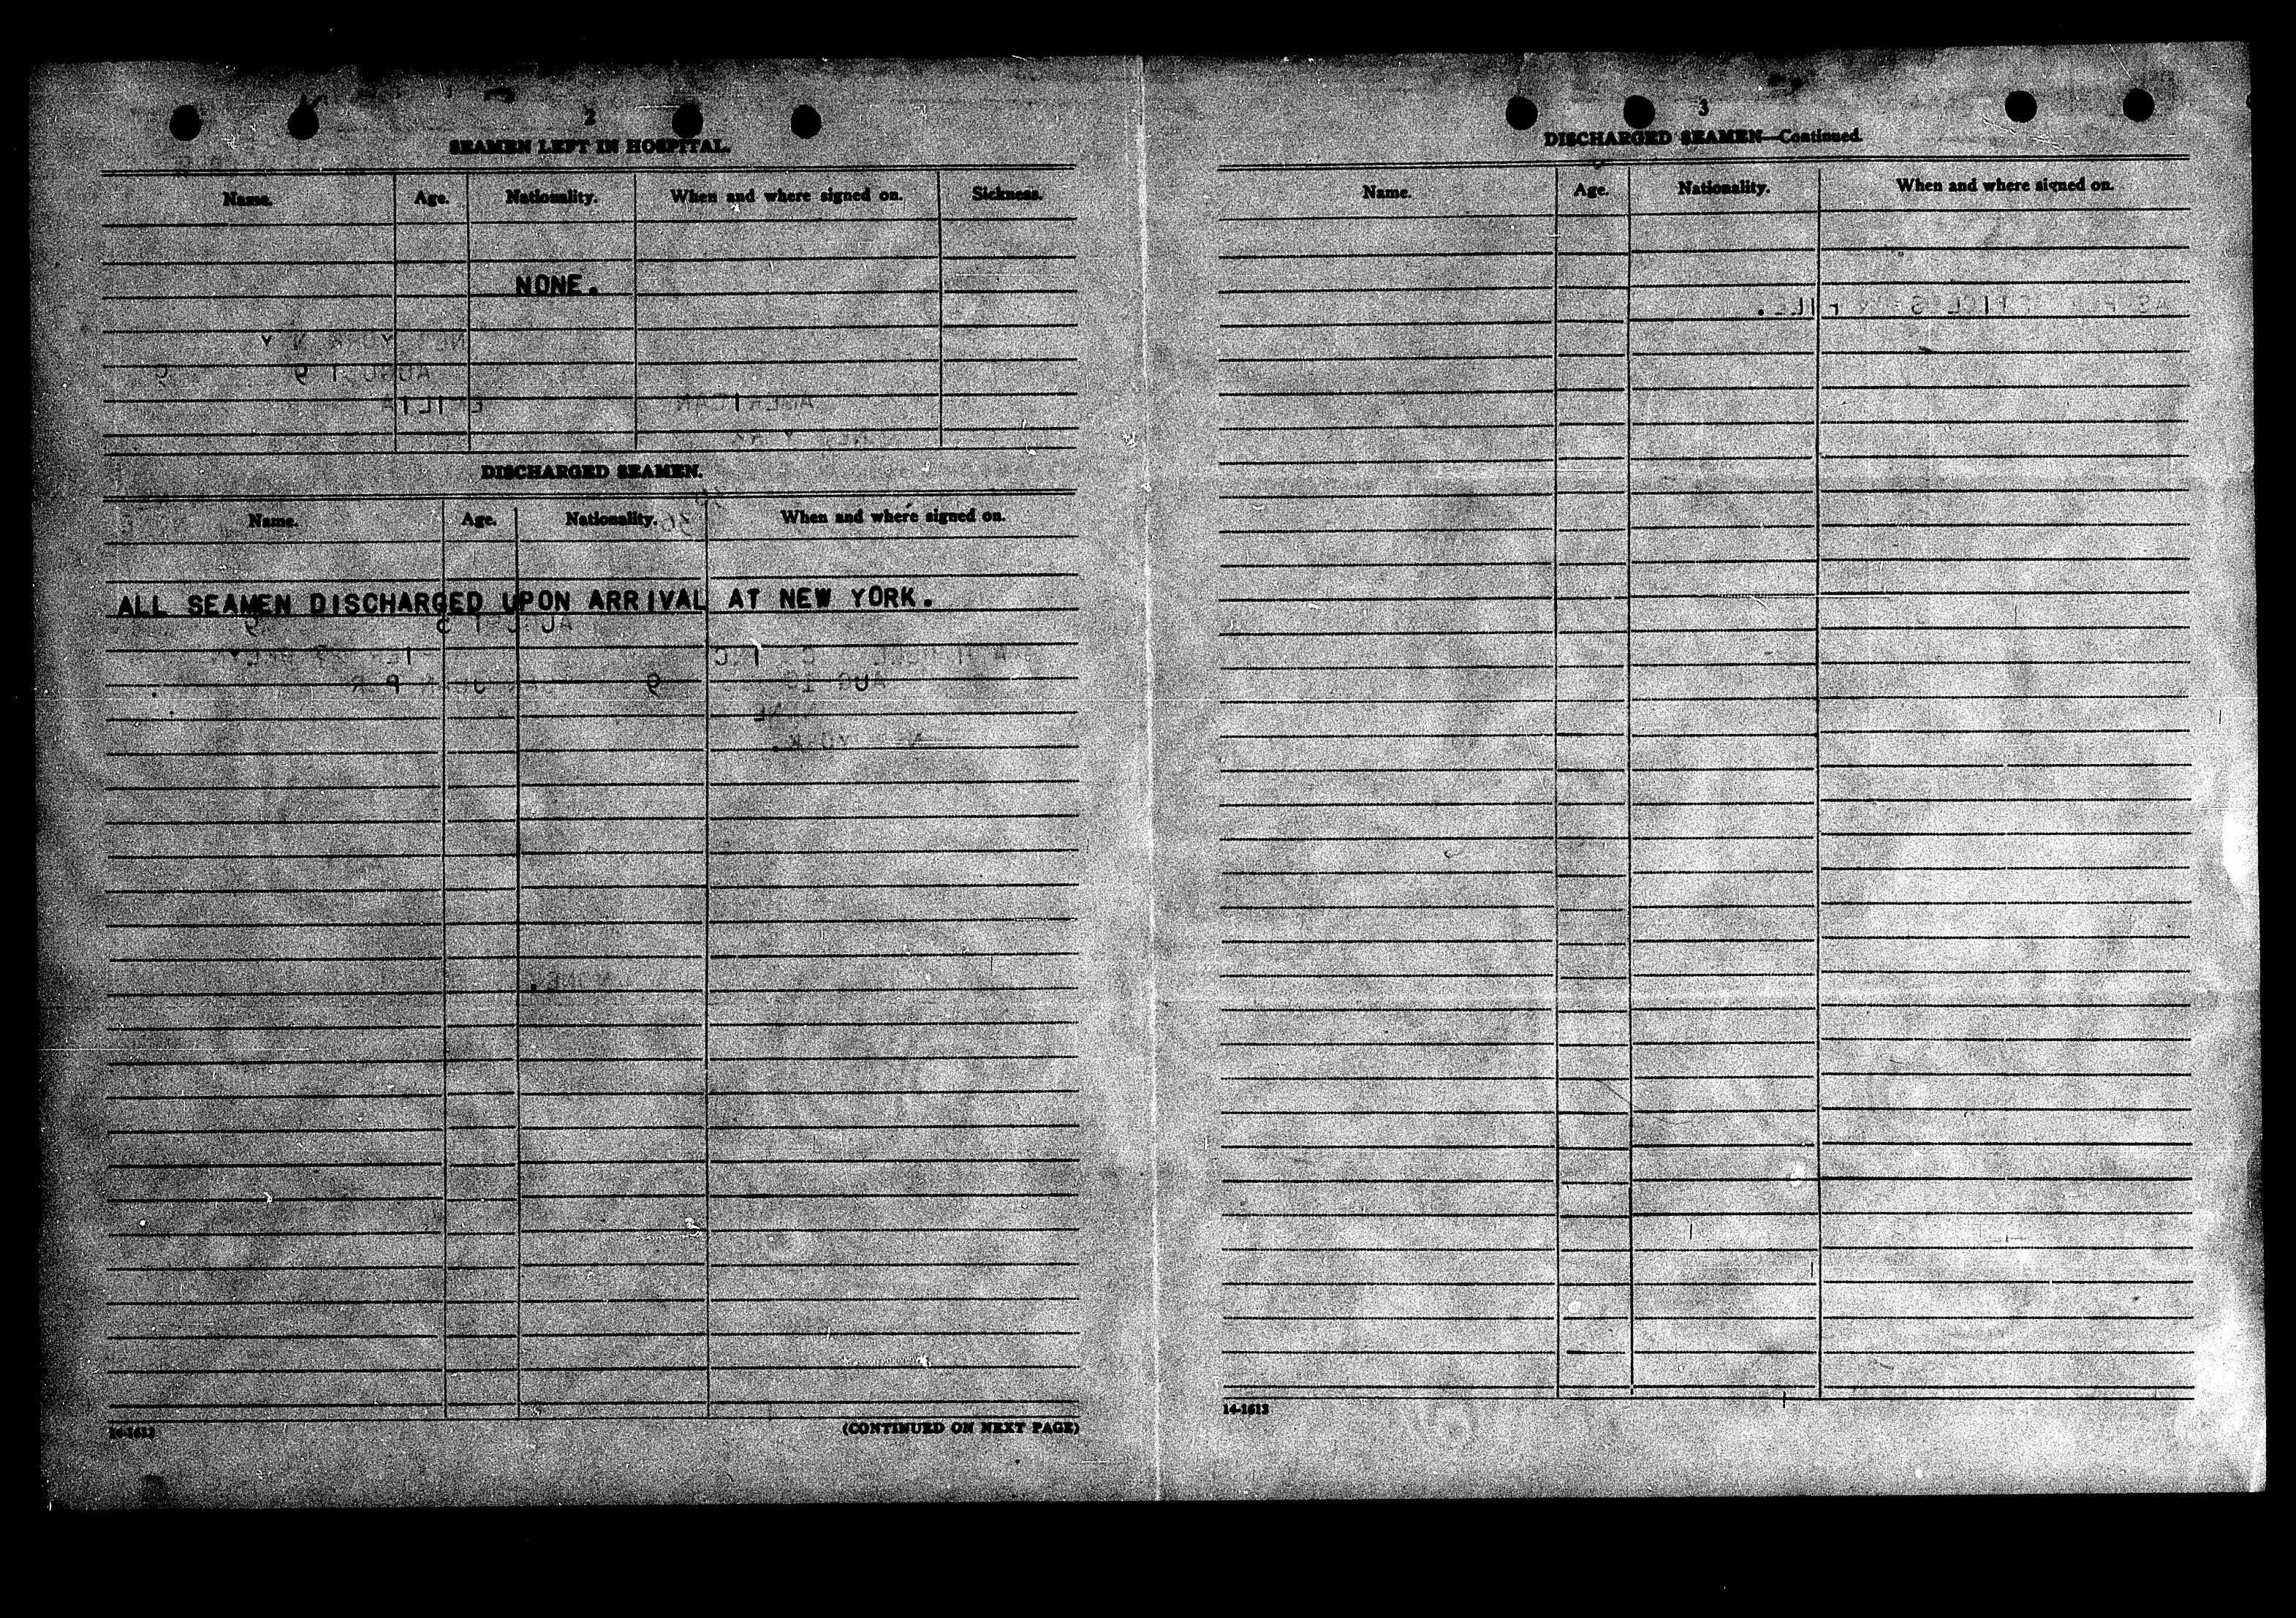 2
SEAMEN LEFT IN HOSPITAL.
Name. Age. Nationality. When and where signed on. Sickness.
NONE.
DISCHARGED SEAMEN.
Name. Age. Nationality. When and where signed on.
ALL SEAMEN DISCHARGED UPON ARRIVAL AT NEW YORK.
14-1613
(CONTINUED ON NEXT PAGE)
3
DISCHARGED SEAMEN—Continued.
Name. Age. Nationality. When and where signed on.
14-1613